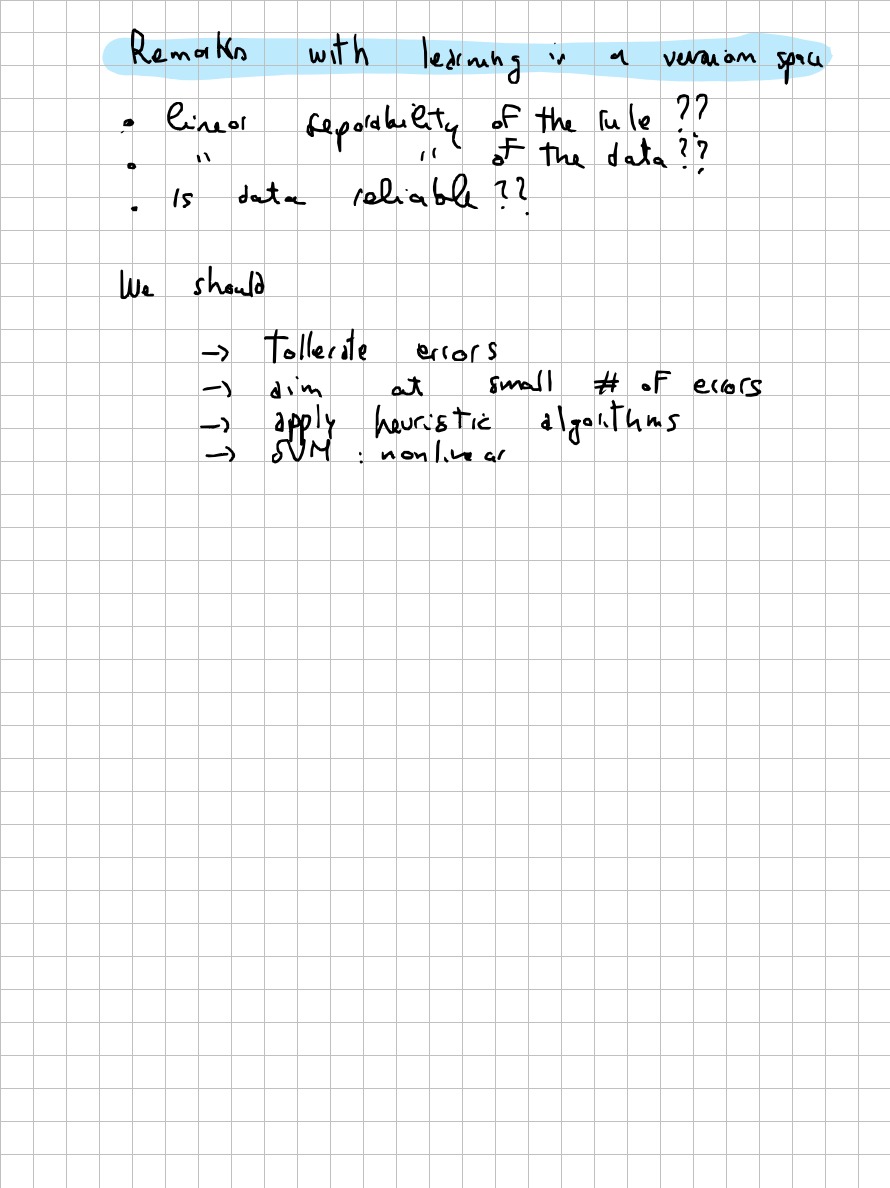 Remarks with learning in a version space
• linear separability of the rule ??
• " " of the data ??
• Is data reliable ??
We should
→ tollerate errors
→ aim at small # of errors
→ apply heuristic algorithms
→ SVM : nonlinear